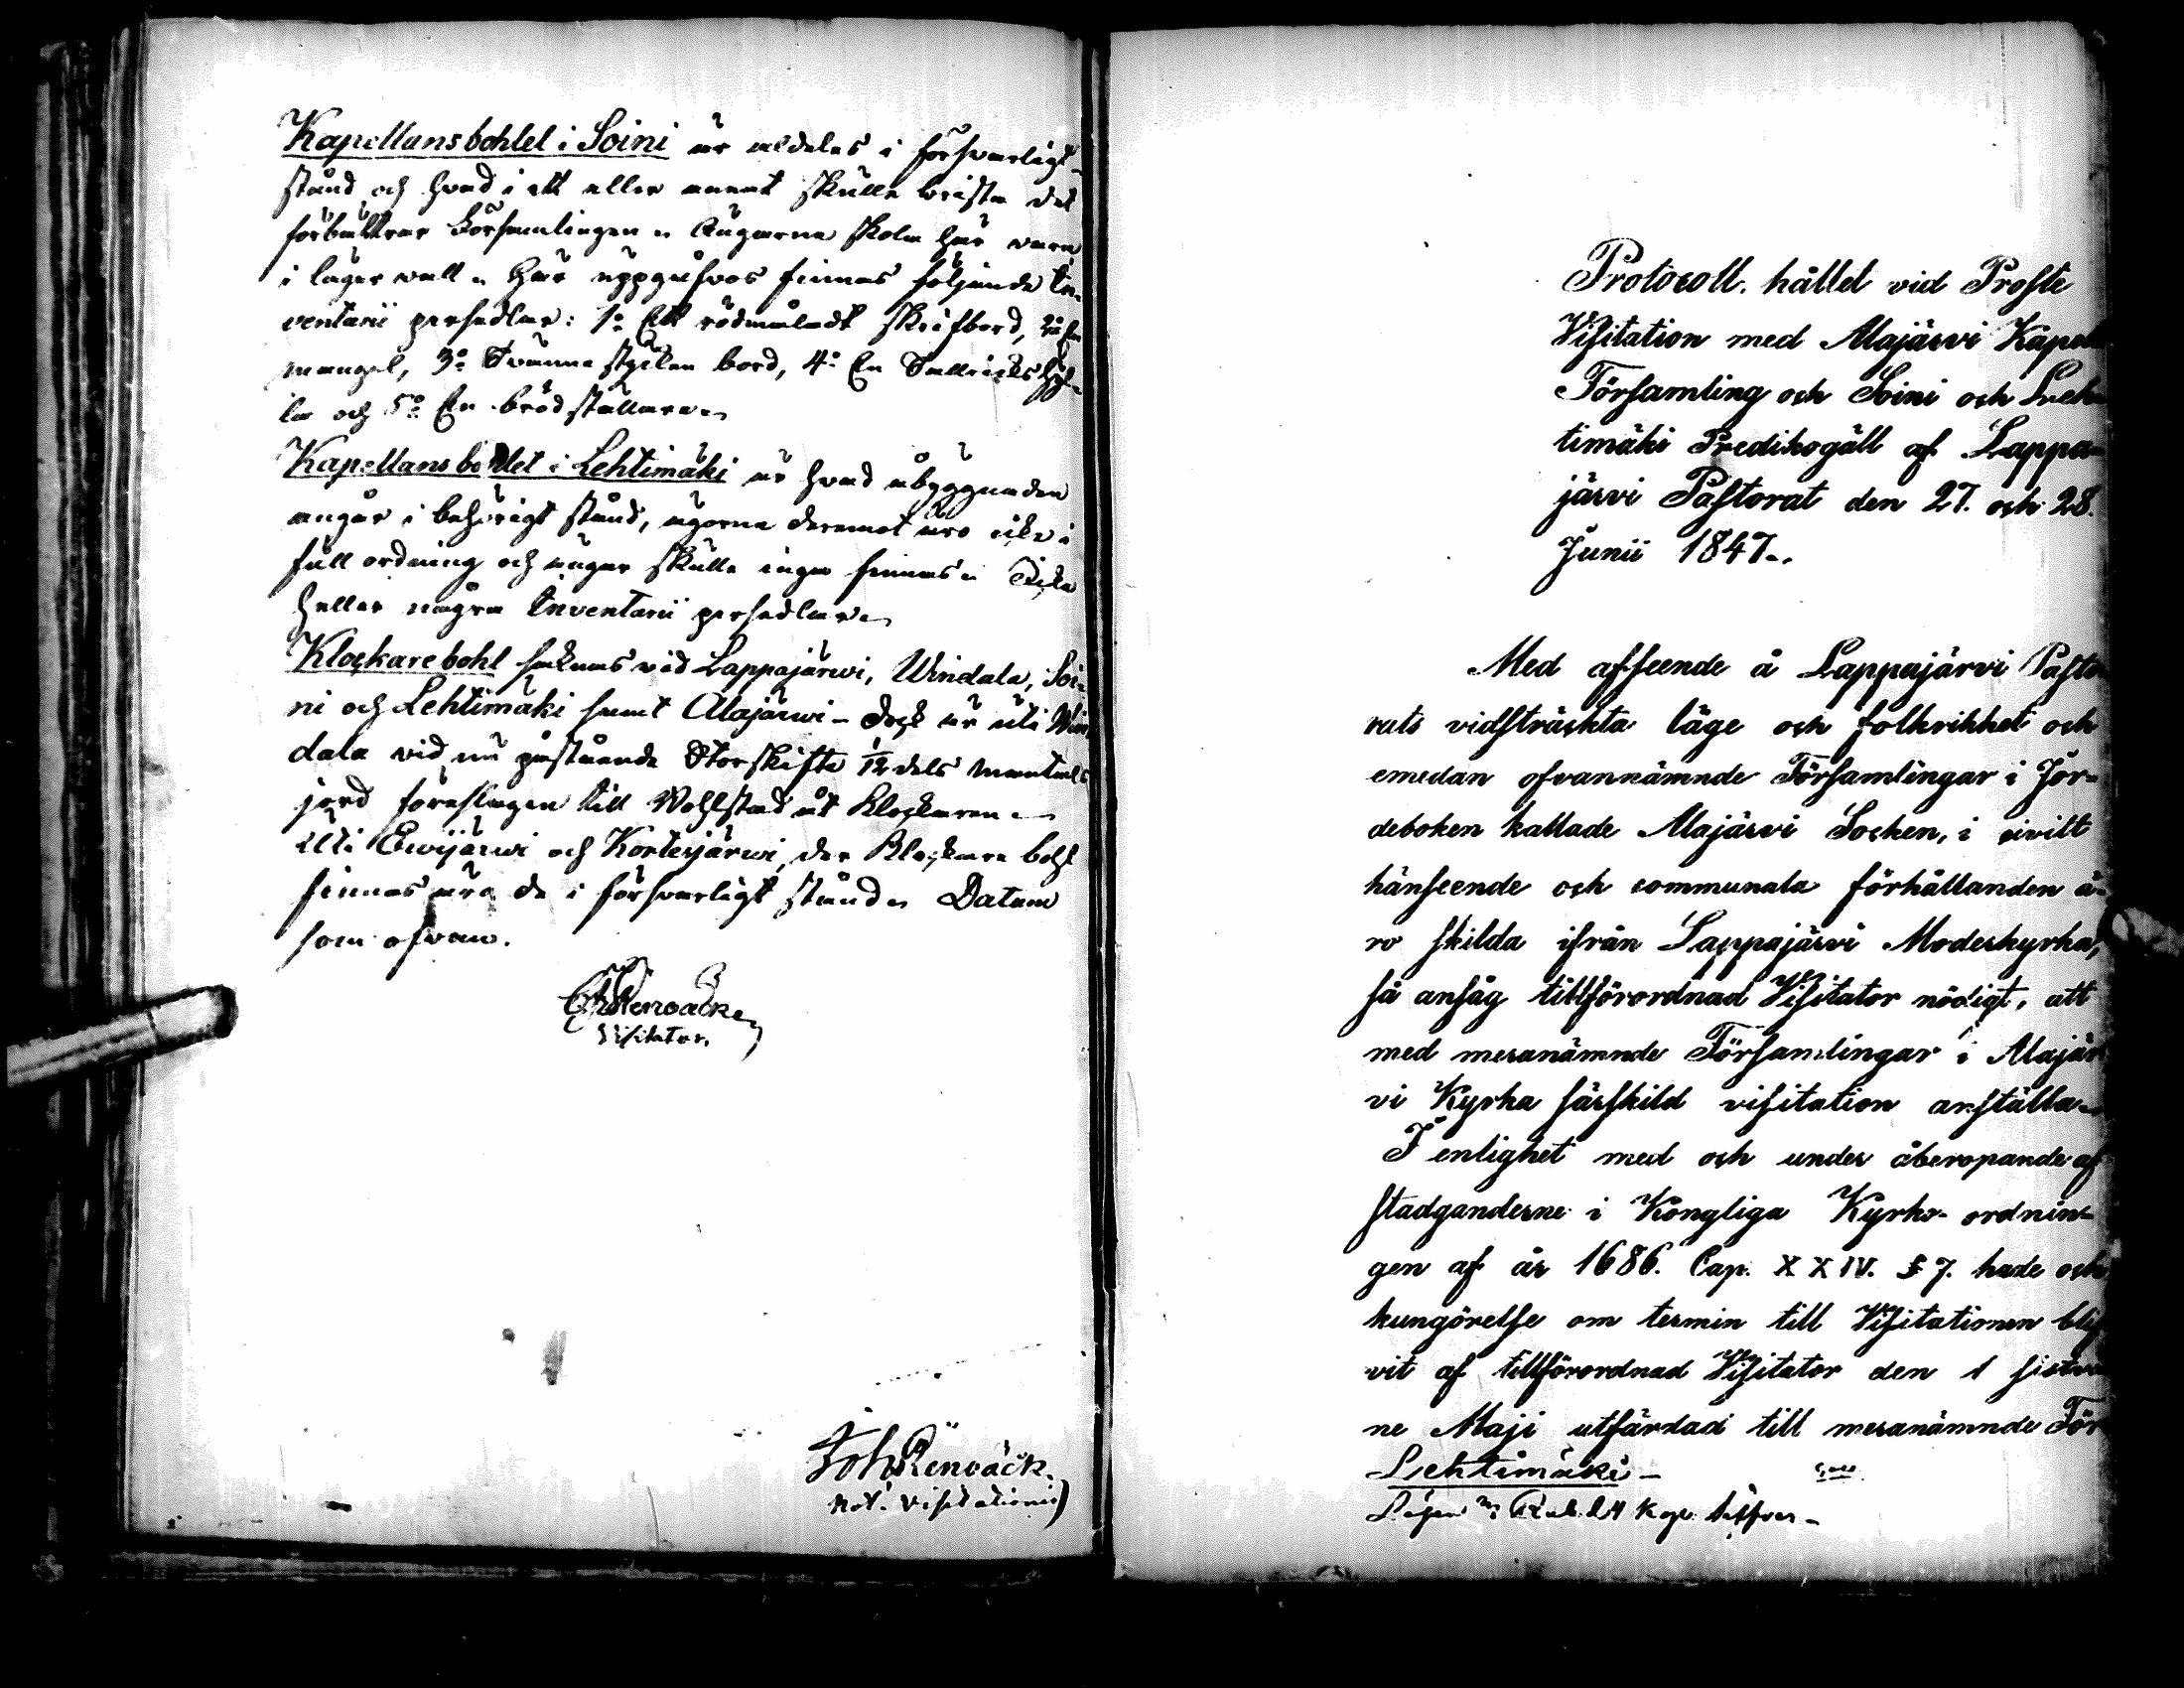 Kapellansbohlet i Soini är aldeles i försvarligt
stånd och hvad i ett eller annat skulle brista det
förbättrar Församlingen. Ängarna skola här vara
i läger vall. Här uppgifvos finnas följande In-
ventarii persedlar: 1o Ett rödmåladt skrifbord, 2o En
mangel, 3o Tvänne stycken bord, 4o En Tallricks hyl-
la och 5o En brödställare.
Kapellansbohlet i Lehtimäki är hvad åbyggnaden
angår i behörigt stånd, ägorne deremot äro icke i
full ordning och ängar skulle inga finnas. Icke
heller några Inventarii persedlar.
Klockarebohl saknas vid Lappajärwi, Windala, Soi-
ni och Lehtimäki samt Alajärwi - dock är uti Win
dala vid nu påstående Storskifte 1/12 dels mantals
jord föreslagen till Bohlstad åt Klockaren.
Uti Ewijärwi och Kortesjärwi, der Klockare bohl
finnas äro de i försvarligt stånd. Datum
som ofvan.
Renvack
Visitator.
Joh Renväck.
Not. Visitationis
Protocoll. hållet vid Proste
Visitation med Alajärvi Kapell
Församling och Soini och Leh-
timäki Predikogäll af Lappa-
järvi Pastorat den 27. och 28.
Junii 1847.
Med afseende å Lappajärvi Pasto
rats vidsträckta läge och folkrikhet och
emedan ofvannämnde Församlingar i Jor-
deboken kallade Alajärvi Socken, i civilt
hänseende och communala förhållanden ä-
ro skilda ifrån Lappajärvi Moderkyrka,
så ansåg tillförordnad Visitator nödigt, att
med meranämnde Församlingar i Alajär
vi Kyrka särskild visitation anställa.
I enlighet med och under åberopande af
stadganderne i Kongliga Kyrko-ordnin-
gen af år 1686. Cap. XXIV. § 7. hade och
kungörelse om termin till Visitationen blif
vit af tillförordnad Visitator den 1 sistvi
ne Maji utfärdad till meranämnde För
Lehtimäki -